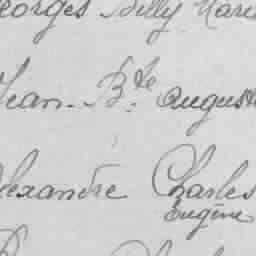 eorges Billy Mari
Jean-Bte August
lexandre Charles
Eugène